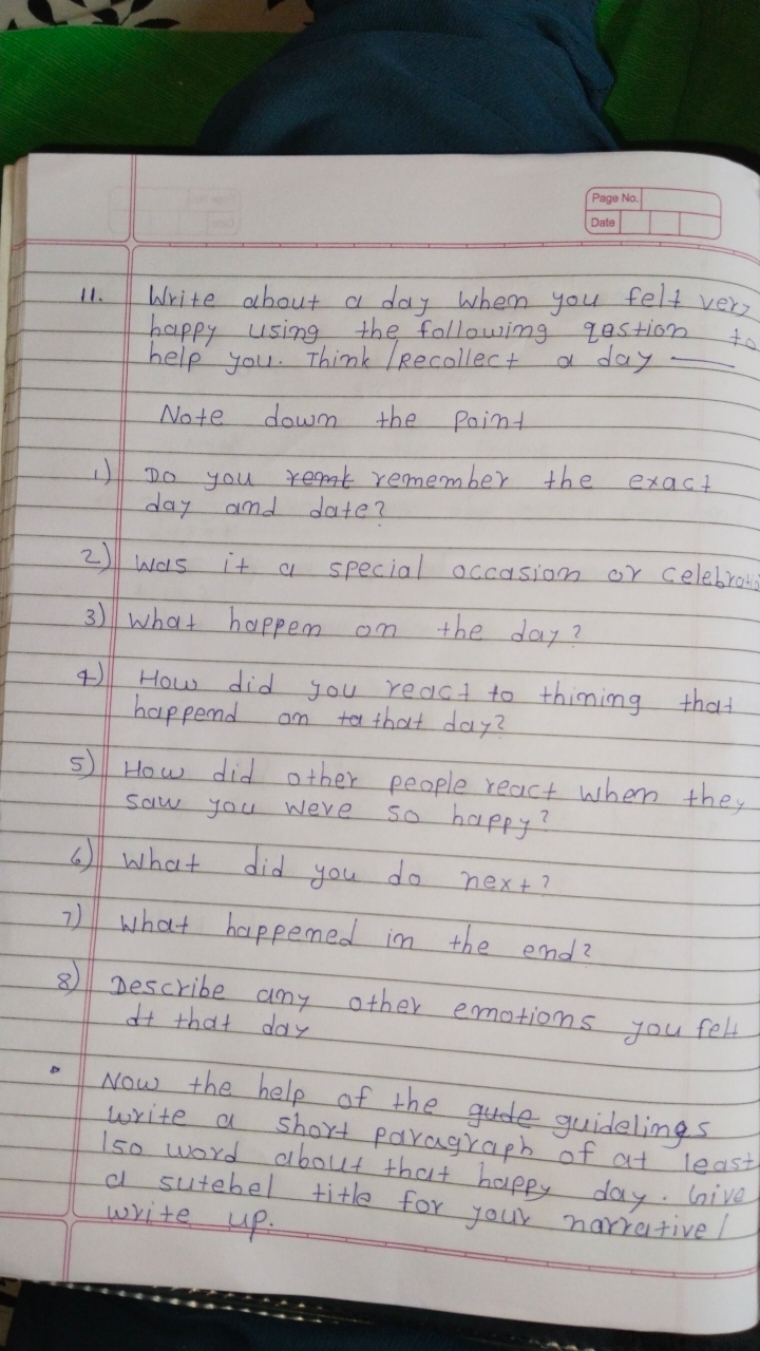 Page No.
Date
11. Write about a day when you felt very
happy using the following qastion to
help you. Think /Recollect a day —
Note down the point
1) Do you remt remember the exact
day and date?
2) Was it a special occasion or celebratio
3) What happen on the day?
4) How did you react to thining that
happend on ta that day?
5) How did other people react when they
saw you were so happy?
6) What did you do next?
7) What happened in the end?
8) Describe any other emotions you felt
at that day
• Now the help of the gude guidelings
write a short paragraph of at least
150 word about that happy day. Give
a sutebel title for your narrative/
write up.